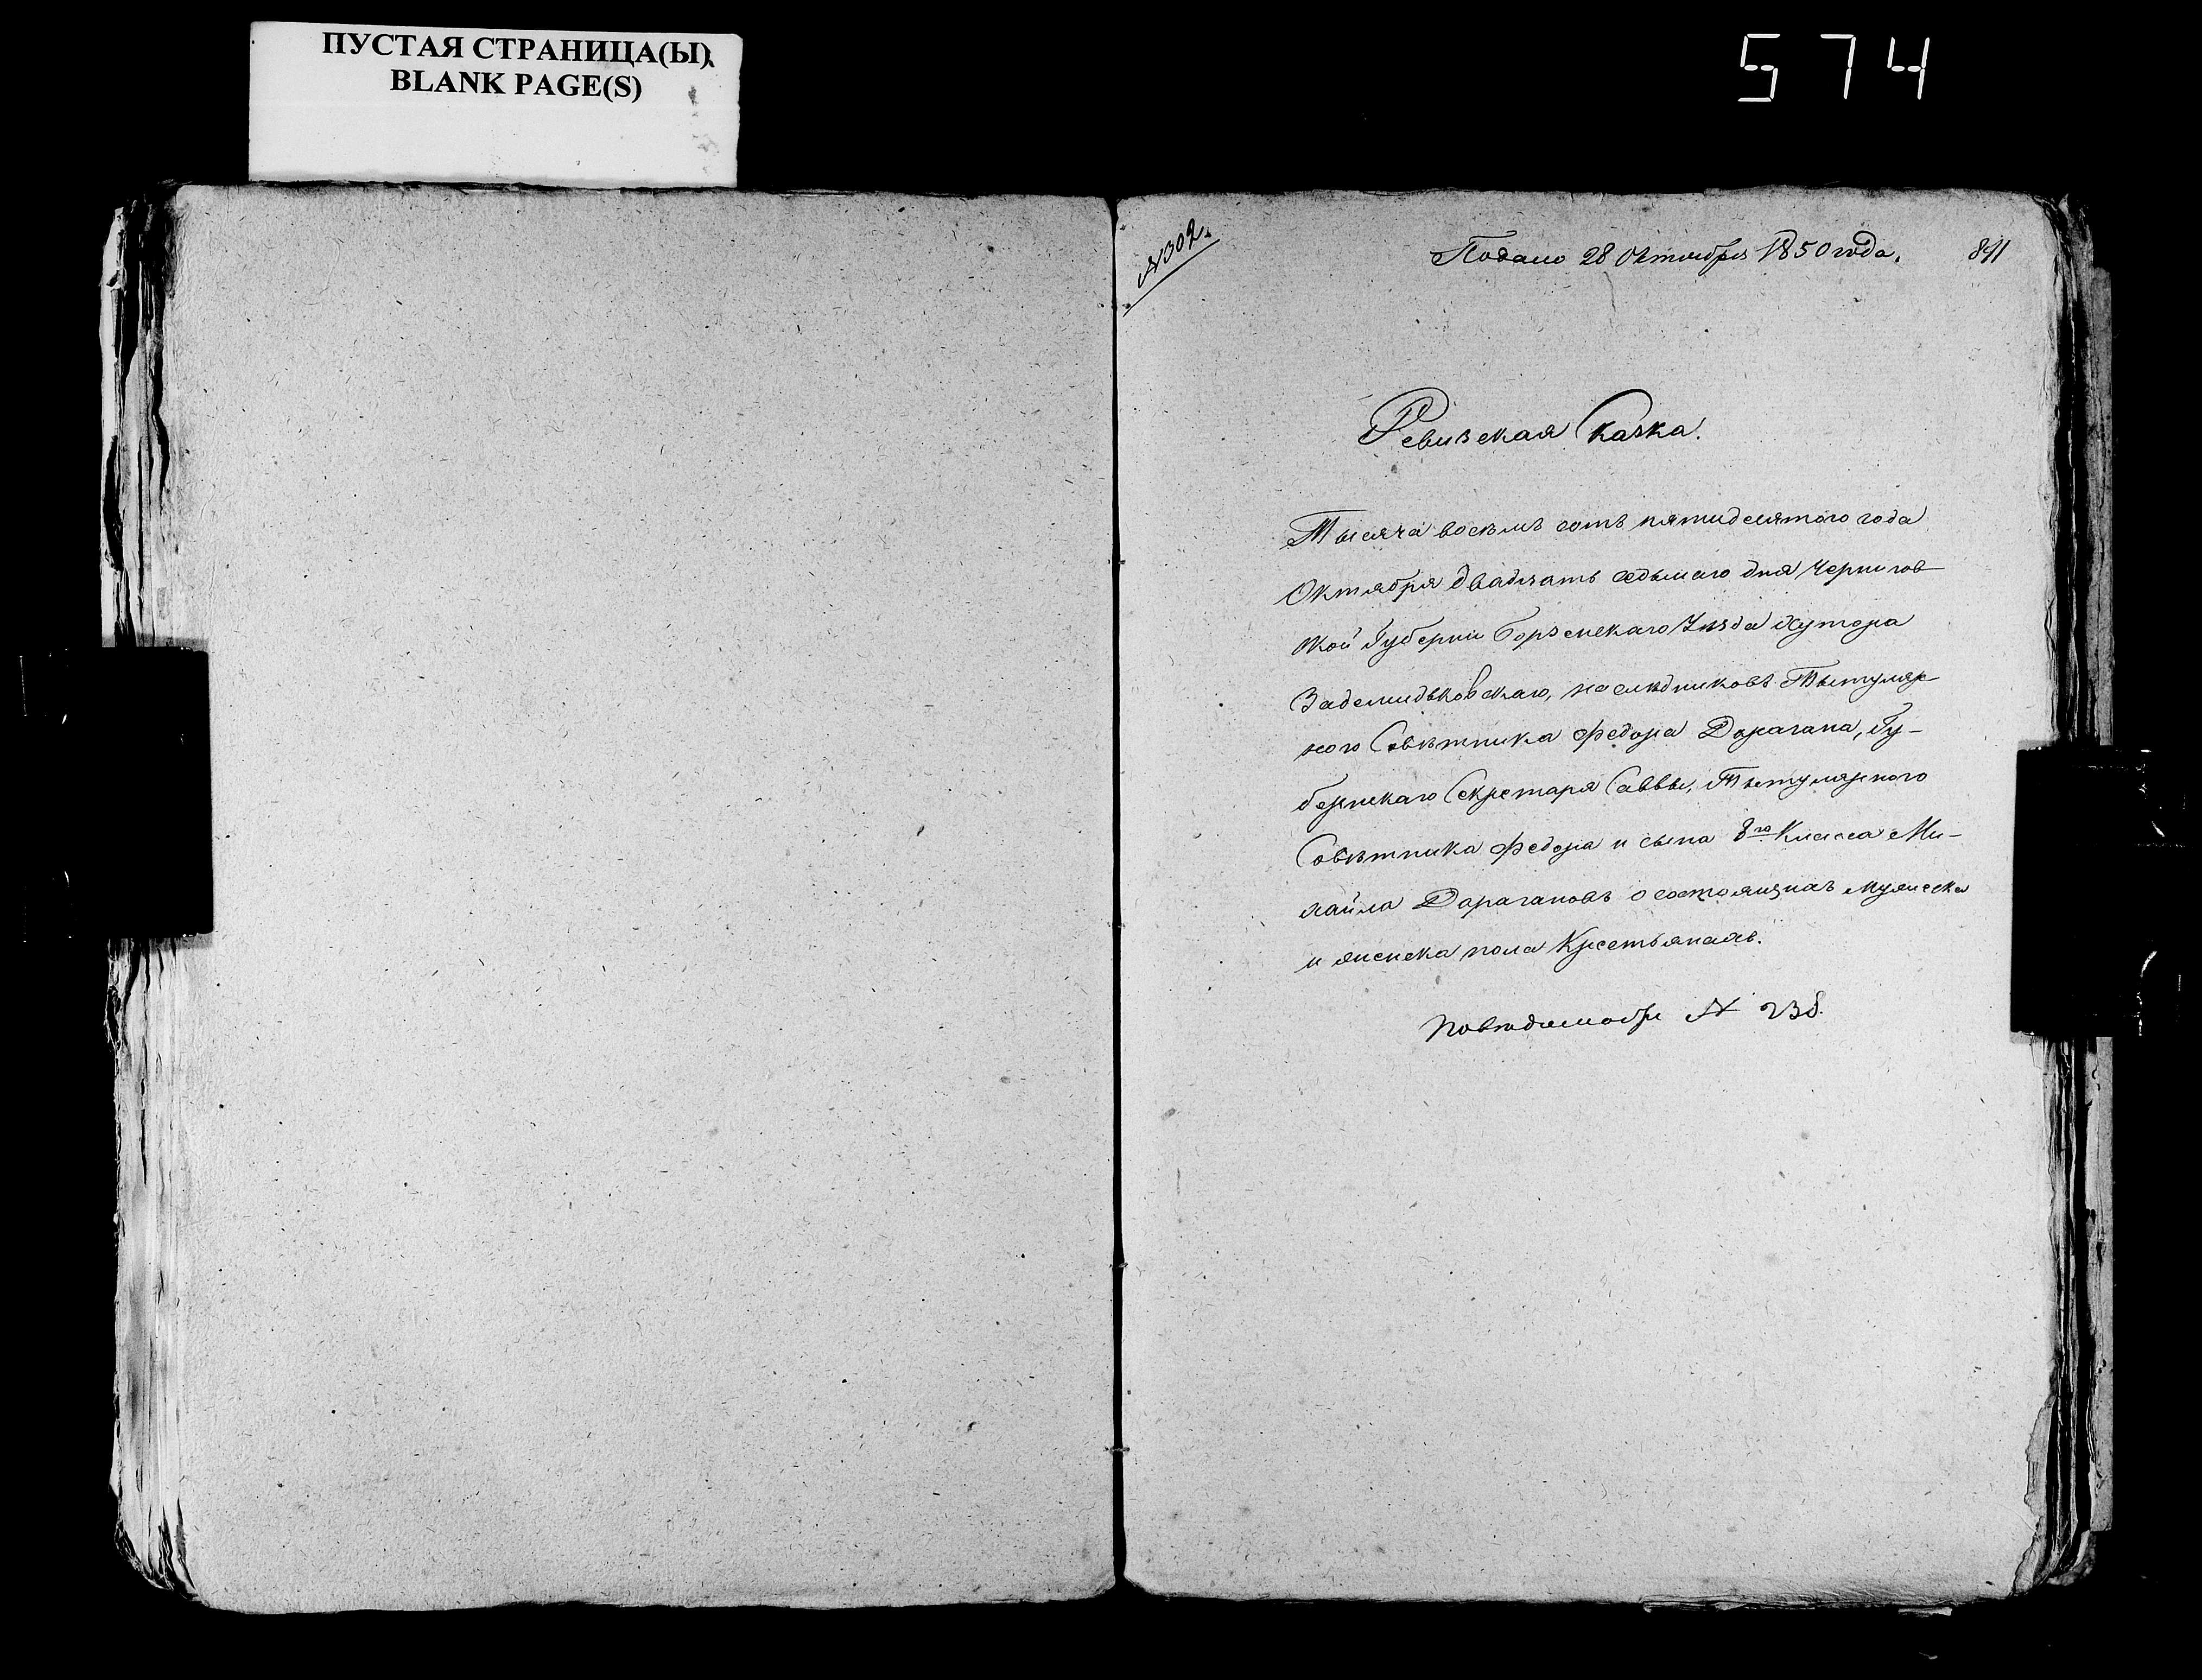 ПУСТАЯ СТРАНИЦА(Ы)
BLANK PAGE(S)
574
N 302.
Подано 28 Октября 1850 года.
891
Ревизская Сказка.
Тысяча восемь сотъ пятидесятого года
Октября двадцать седьмаго дня Чернигов
ской Губернии Борзенскаго Уѣзда Хутора
Задемидьковскаго, наслѣдниковъ Тытуляр
ного Совѣтника Федора Дарагана, Гу-
бернскаго Секретаря Саввы, Тытулярного
Совѣтника Федора и сына 8го Класса Ми-
хайла Дарагановъ о состоящихъ мужеска
и женска пола Крестьянахъ.
N 238.